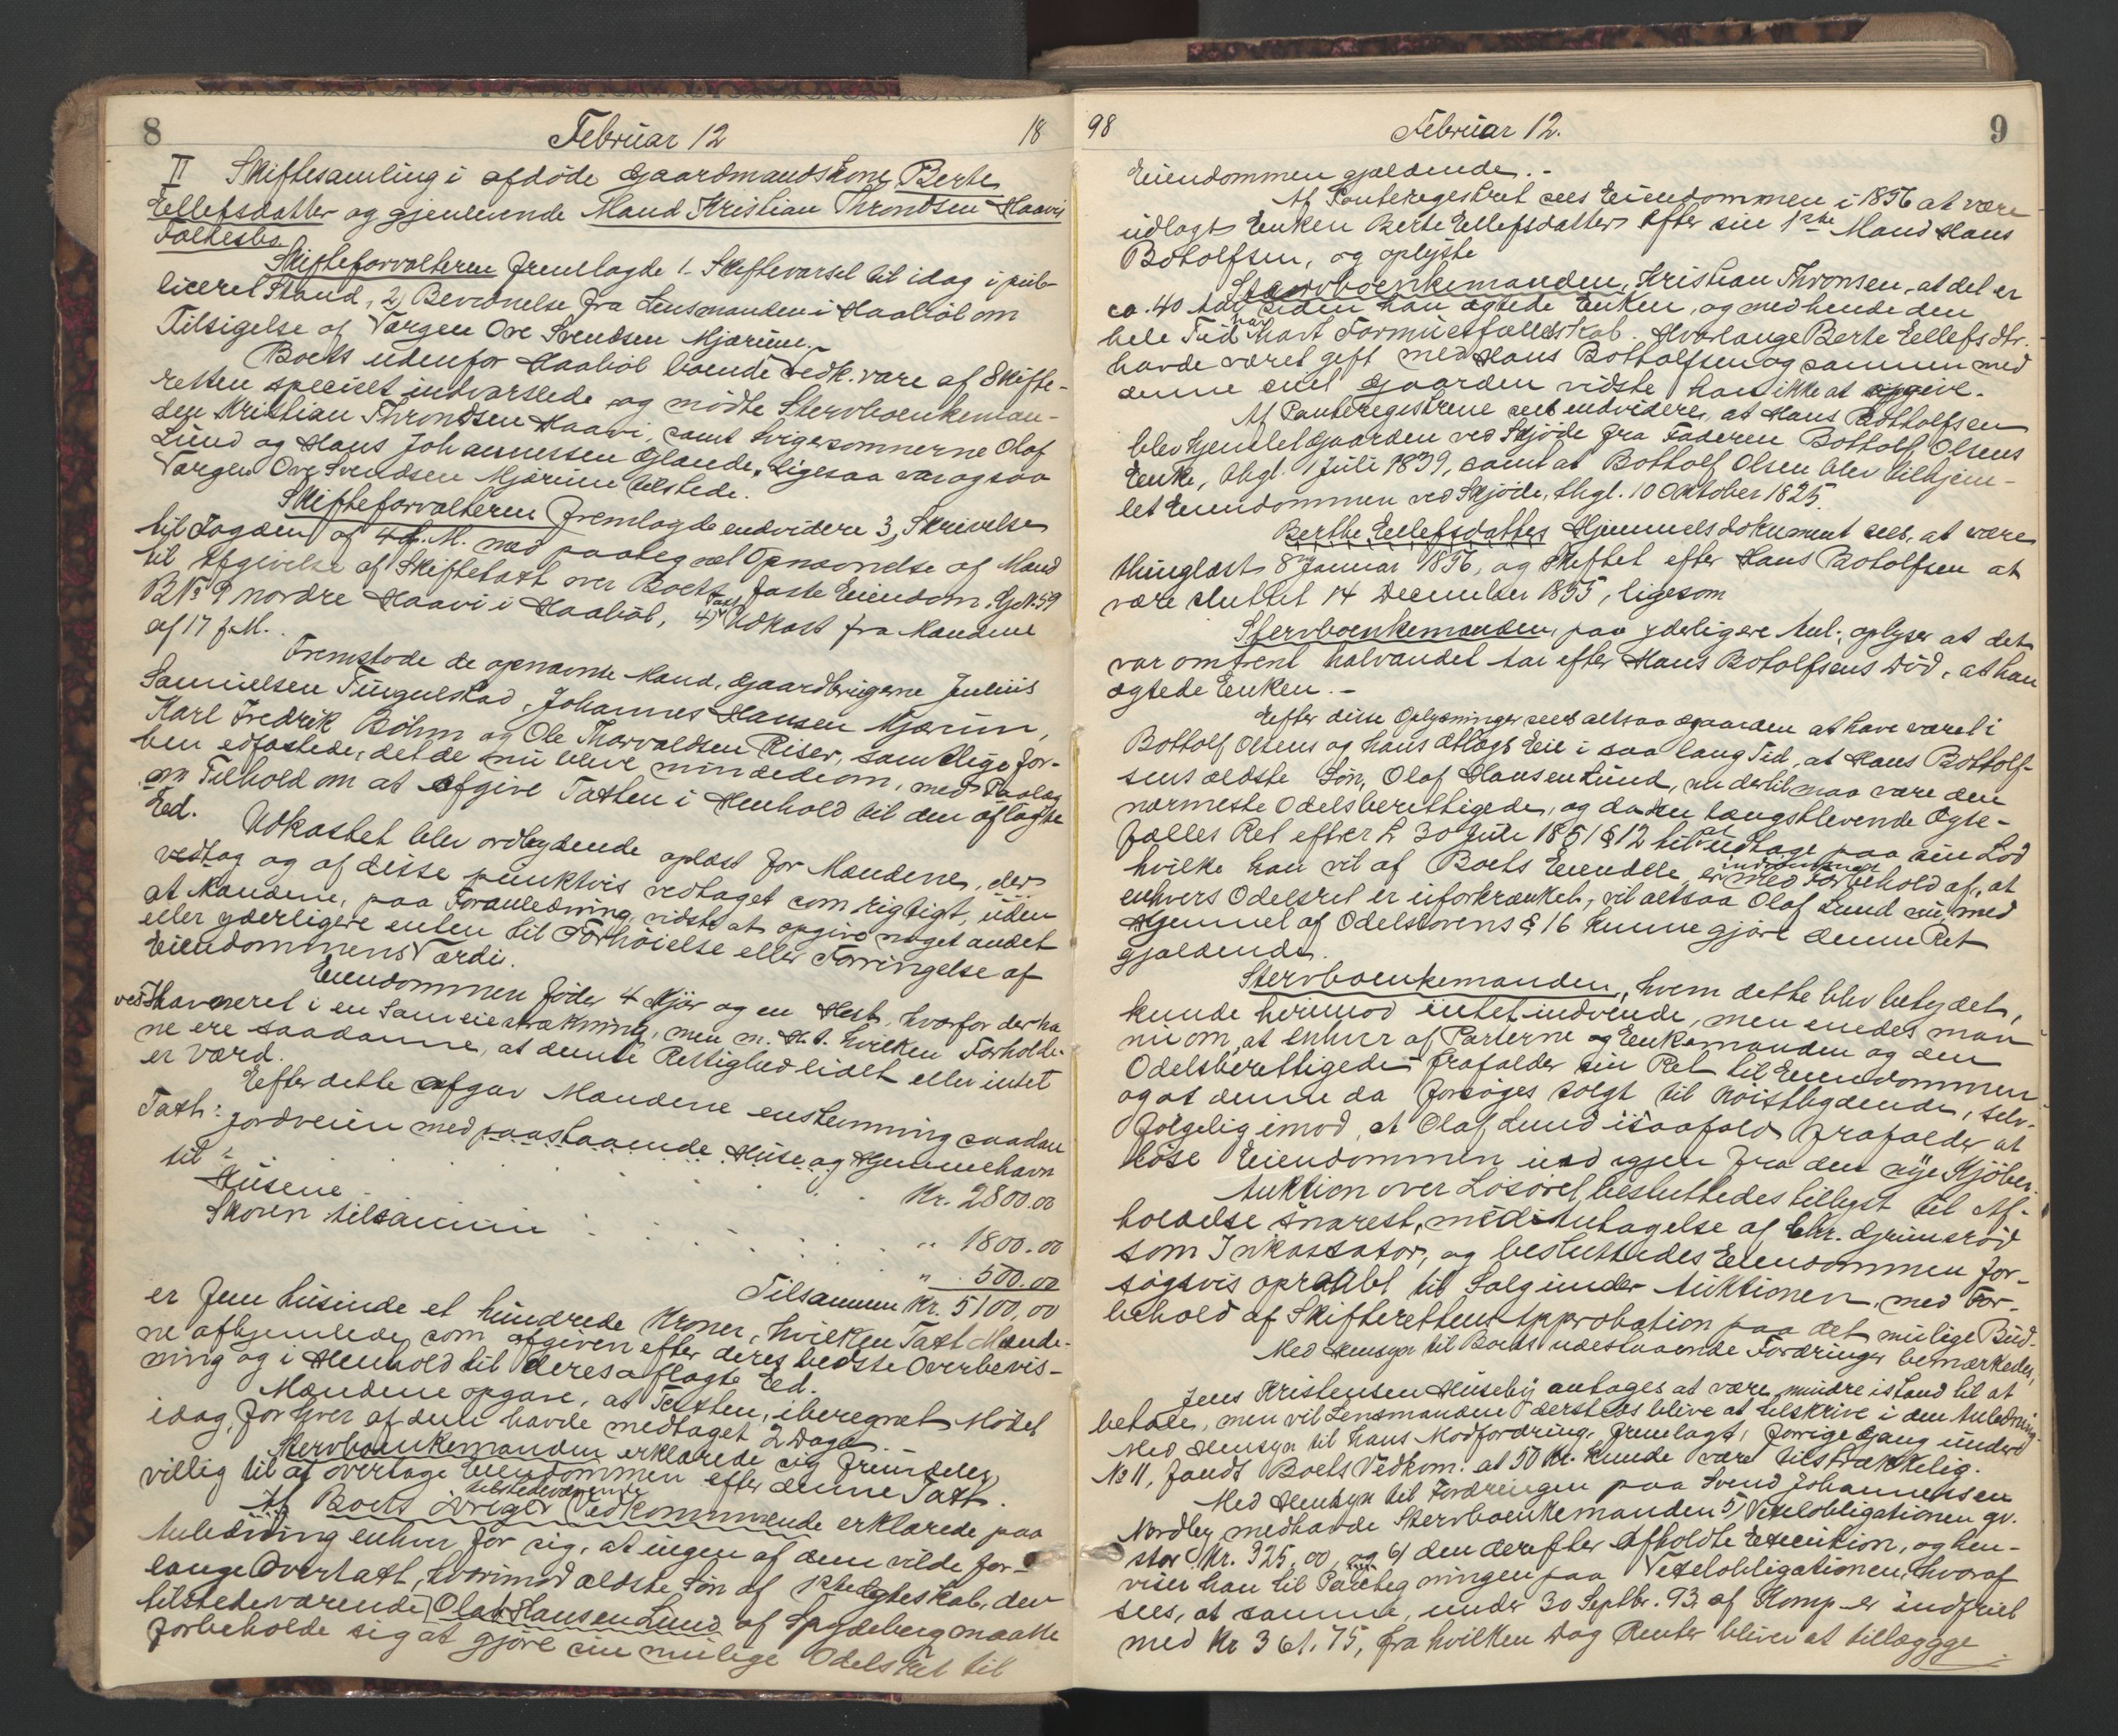 8 Februar 12 18
II Skiftesamling i afdøde Gaardmandskone Berte
Ellefsdatter og gjenlevende Mand Kristian Throndsen Haavis
Fællesbo
Skifteforvalteren fremlagde 1. Skiftevarsel til idag i pub-
liceret Stand, 2, Bevidnelse fra Lensmanden i Haabøl om
Tilsigelse af Værgen Ove Svendsen Mjærum.
Boets udenfor Haabøl boende Vedk. vare af Skifte-
retten specielt indvarslede og mødte Stervboenkeman-
den Kristian Throndsen Haavi, samt Svigersønnerne Olaf
Lund og Hans Johannessen Glende. Ligesaa var ogsaa
Værgen Ove Svendsen Mjærum tilstede.
Skifteforvalteren fremlagde endvidere 3, Skrivelse
til Fogden af 4 f. M. med paategnet Opnævnelse af Mænd
til Afgivelse af Skiftetaxt over Boets faste Eiendom G.N. 59
B.N. 9 nordre Haavi i Haabøl, 4, Taxt Udkast fra Mændene
af 17 f. M.
Fremstode de opnævnte Mænd, Gaardbrugerne Julius
Samuelsen Tingulstad, Johannes Hansen Mjærum,
Karl Fredrik Böhm og Ole Thorvaldsen Riser, samtlige for-
hen edfæstede, det de nu bleve mindede om, med Paalæg
om Tilhold om at afgive Taxten i Henhold til den aflagte
Ed.
Udkastet blev ordlydende oplæst for Mændene, der
vedtog og af disse punktvis vedtaget som rigtigt, uden
at Mændene, paa Foranledning, vidste at opgive noget andet
eller yderligere enten til Forhøielse eller Forringelse af
Eiendommens Værdi.
Eiendommen føder 4 Kjør og en Hest, hvorfor der ha
ves Havneret i en Sameiestrækning, men m. H. t. hvilken Forholde-
ne ere saadanne, at denne Rettighed lidet eller intet
er værd.
Efter dette afgav Mændene enstemmig saadan
Taxt: Jordveien med paastaaende Huse og Hjemmehavn
til . . . Kr. 2800.00
Husene . . . " 1800.00
Skoven tilsammen . . . " 500.00
Tilsammen Kr. 5100.00
er Fem tusinde et hundrede Kroner, hvilken Taxt Mænde-
ne afhjemlede som afgiven efter deres bedste Overbevis-
ning og i Henhold til deres aflagte Eed.
Mændene opgave, at Taxten, iberegnet Mødet
idag, for hver af dem havde medtaget 2 Dage.
Stervboenkemanden erklærede sig fremdeles
villig til at overtage Eiendommen efter denne Taxt.
Af Boets øvrige tilstedeværende Vedkommende erklærede paa
Anledning enhver for sig, at ingen af dem vilde for-
lange Overtaxt, hvorimod ældste Søn af 1ste Ægteskab, den
tilstedeværende Olaf Hansen Lund af Spydeberg maatte
forbeholde sig at gjøre sin mulige Odelsret til
98 Februar 12. 9
Eiendommen gjældende.-
Af Panteregistret sees Eiendommen i 1856 at være
udlagt Enken Berte Ellefsdatter efter sin 1ste Mand Hans
Botolfsen, og oplyste
Stervboenkemanden, Kristian Thronsen, at det er
ca. 40 Aar siden han ægtede Enken, og med hende den
hele Tid har havt Formuesfællesskab. Hvorlænge Berte Ellefsdtr.
havde været gift med Hans Botholfsen og sammen med
denne eiet Gaarden vidste han ikke at opgive.
Af Panteregistrene sees endvidere, at Hans Botholfsen
blev hjemlet Gaarden ved Skjøde fra Faderen Botholf Olsens
Enke, thgl. 1 Juli 1839, samt at Botholf Olsen blev tilhjem-
let Eiendommen ved Skjøde, thgl. 10 Oktober 1825.
Berthe Ellefsdatters Hjemmelsdokument sees, at være
thinglæst 8 Januar 1856, og Skiftet efter Hans Botolfsen at
være sluttet 14 December 1855, ligesom
Stervboenkemanden, paa yderligere Anl., oplyser at det
var omtrent halvandet Aar efter Hans Botolfsens Død, at han
ægtede Enken.-
Efter disse Oplysninger sees altsaa Gaarden at have været i
Botholf Olsens og hans Ætlægs Eie i saa lang Tid, at Hans Botholf-
sens ældste Søn, Olaf Hansen Lund, nu dertil maa være den
nærmeste Odelsberettigede, og da den længstlevende Ægte-
fælles Ret efter L 30 Juli 1851 § 12 til at udtage paa sin Lod
hvilke han vil af Boets Eiendele, er indrømmet med Forbehold af, at
enhvers Odelsret er uforkrænket, vil altsaa Olaf Lund nu, med
Hjemmel af Odelslovens § 16 kunne gjøre denne Ret
gjældende.
Stervboenkemanden, hvem dette blev betydet,
kunde herimod intet indvende, men enedes man
nu om, at enhver af Parterne og Enkemanden og den
Odelsberettigede frafalder sin Ret til Eiendommen
og at denne da forsøges solgt til Høistbydende, selv-
følgelig imod, at Olaf Lund isaafald frafalder at
løse Eiendommen ind igjen fra den nye Kjøber.
Auktion over Løsøret besluttedes tillyst til Af-
holdelse snarest, med Antagelse af Chr. Grimsrød
som Inkassator, og besluttedes Eiendommen for-
søgsvis opraabt til Salg under Auktionen, med For-
behold af Skifterettens Approbation paa det mulige Bud.
Med Hensyn til Boets udestaaende Fordringer bemærkedes,
Jens Kristensen Huseby antages at være mindre istand til at
betale, men vil Lensmanden dersteds blive at tilskrive i den Anledning.
Med Hensyn til hans Modfordring, fremlagt, forrige Gang under
No 11, fandt Boets Vedkom. at 50 Kr. kunde være tilstrækkelig.
Med Hensyn til Fordringen paa Svend Johannensen
Nordby medhavde Stervboenkemanden 5, Vexelobligationen gr.
stor Kr. 325,00, og 6, den derefter afholdte Execution, og hen-
viser han til Paategningen paa Vexelobligationen, hvoraf
sees, at samme, under 30 Septbr. 93, af Komp. er indfriet
med Kr 361.75, fra hvilken Dag Renter bliver at tillægge